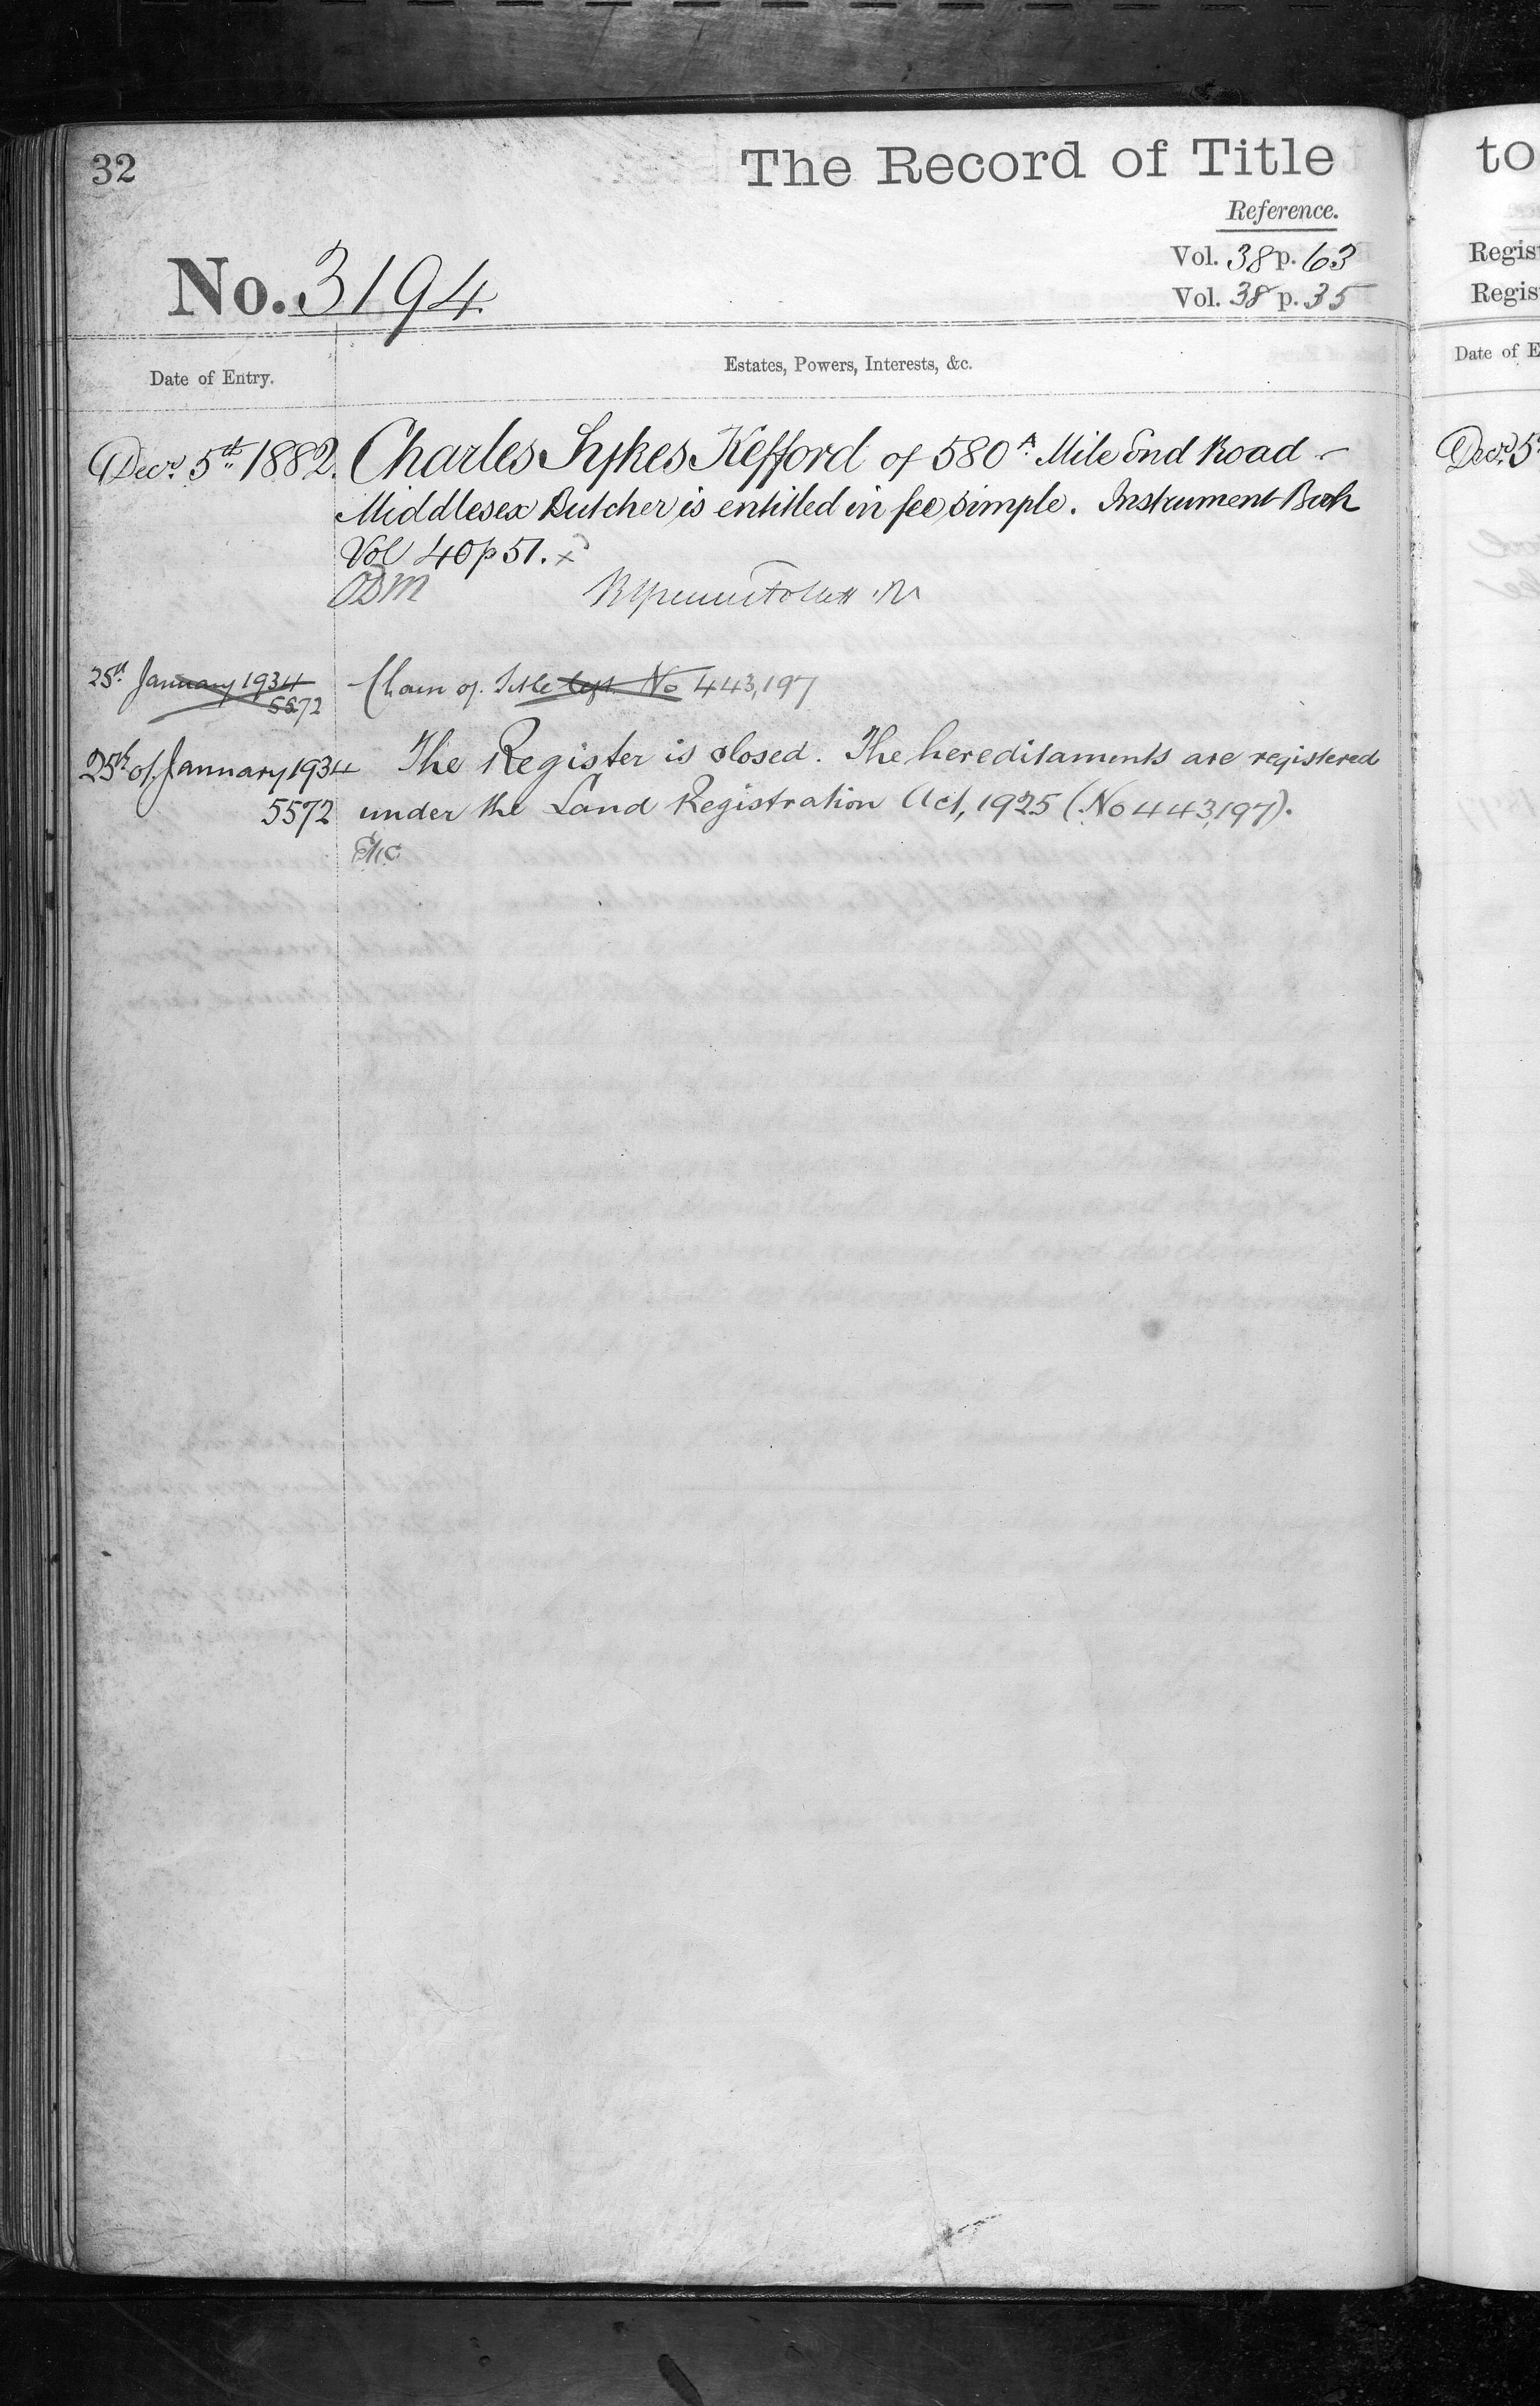 32
The Record of Title
Reference.
Vol. 38 p. 63
Vol. 38 p. 35
No. 3194
Date of Entry.
Estates, Powers, Interests, &c.
Decr. 5th 1882. Charles Sykes Kefford of 580A Mile End Road
Middlesex Butcher is entitled in fee simple. Instrument Book
Vol 40 p 51. x
25th January 1934
5572
Title No 443,197
25th of January 1934 The Register is closed. The hereditaments are registered
5572 under the Land Registration Act, 1925 (No 443,197).
to
Regis
Regis
Date of E
Decr. 5